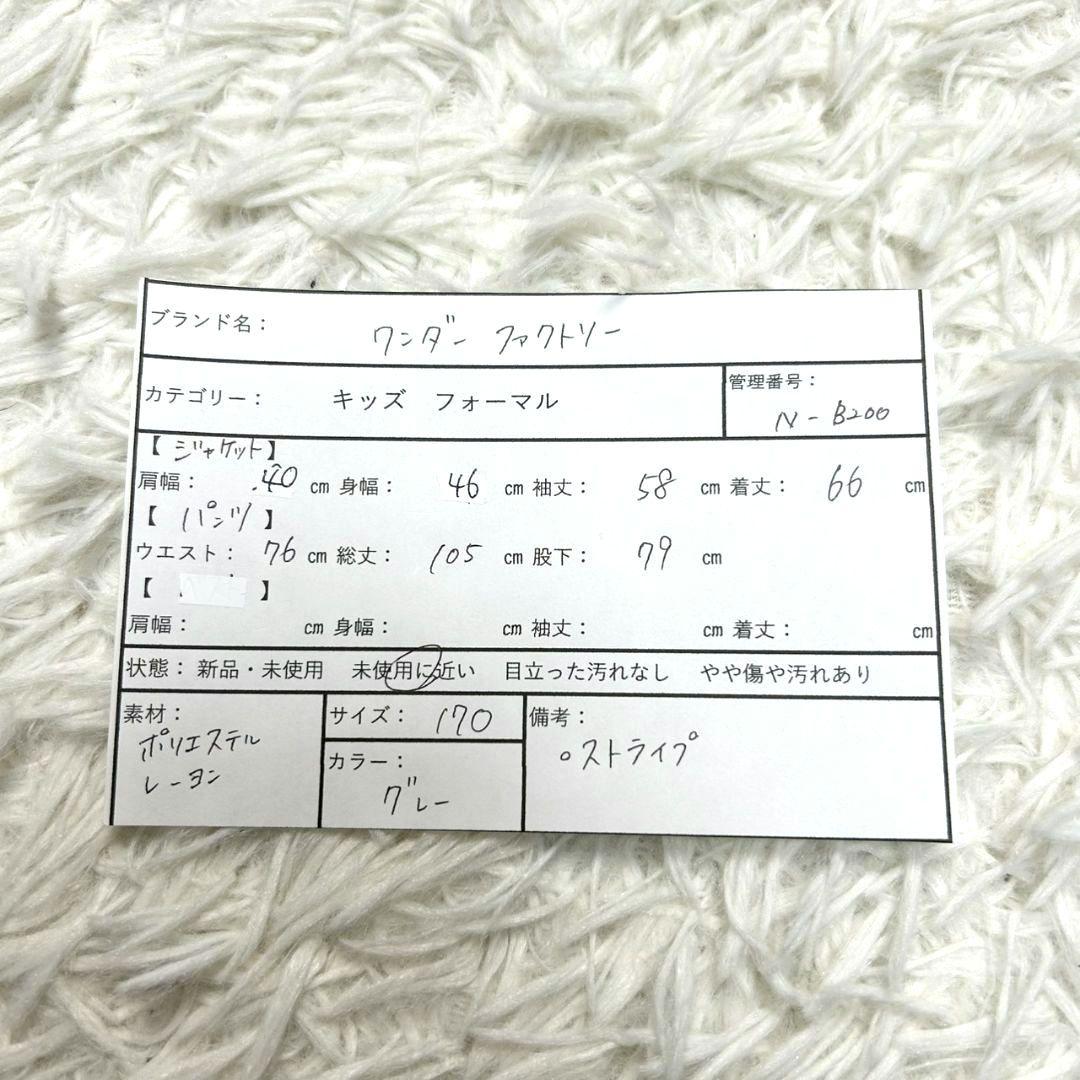 ブランド名： ワンダーファクトリー
カテゴリー： キッズ フォーマル
管理番号：
N-B200
【ジャケット】
肩幅： 40 cm 身幅： 46 cm 袖丈： 58 cm 着丈： 66 cm
【パンツ】
ウエスト： 76 cm 総丈： 105 cm 股下： 79 cm
【 】
肩幅： cm 身幅： cm 袖丈： cm 着丈： cm
状態： 新品・未使用 未使用に近い 目立った汚れなし やや傷や汚れあり
素材：
ポリエステル
レーヨン
サイズ： 170
カラー：
グレー
備考：
○ストライプ